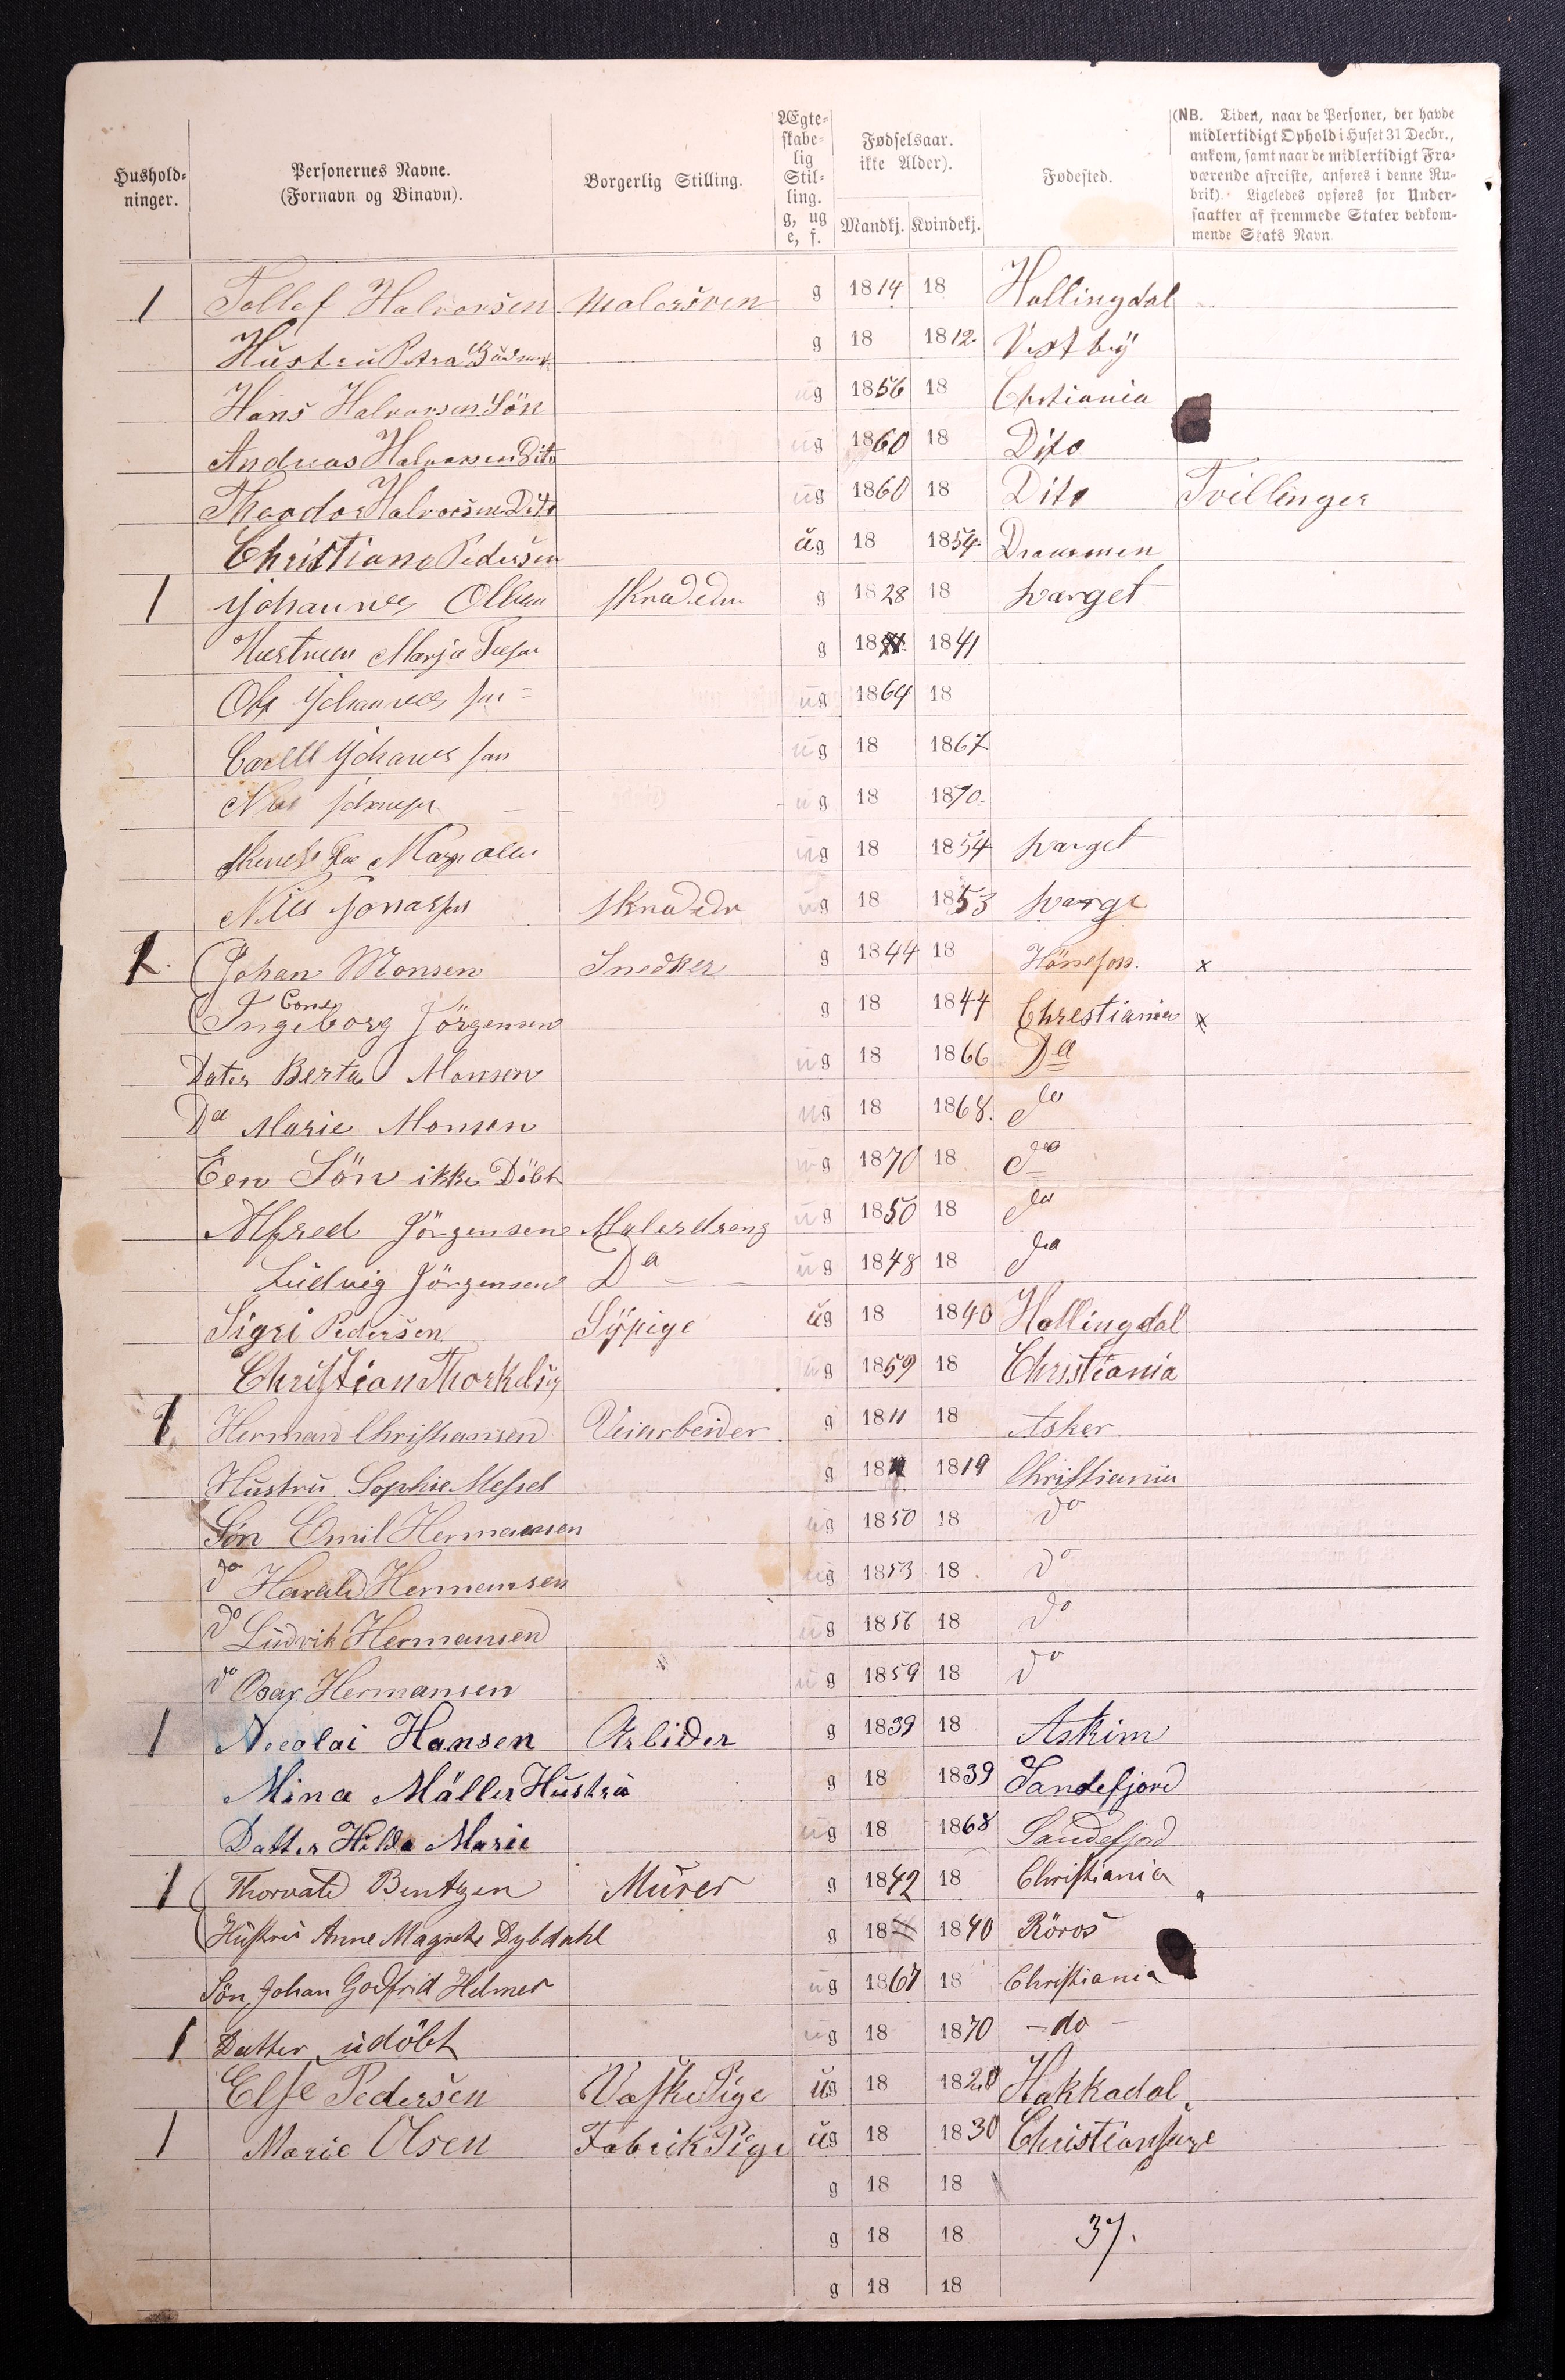 Hushold-
ninger.
Personernes Navne.
(Fornavn og Binavn).
Borgerlig Stilling.
Ægte-
skabe-
lig
Stil-
ling.
g, ug
e, f.
Fødselsaar.
ikke Alder).
Mandkj. Kvindekj.
Fødested.
(NB. Tiden, naar de Personer, der havde
midlertidigt Ophold i Huset 31 Decbr.,
ankom, samt naar de midlertidigt Fra-
værende afreiste, anføres i denne Ru-
brik). Ligeledes opføres for Under-
saatter af fremmede Stater vedkom-
mende Stats Navn.
1 Tollef Halvorsen Malersven g 1814 18 Hallingdal
Hustru Petra g 18 1812. Vestby
Hans Halvorsen Sön ug 1856 18 Chrtiania
Andreas Halvorsen Dito ug 1860 18 Dito
Theodor Halvorsen Dito ug 1860 18 Dito Tvillinger
Christiane Pedersen ug 18 1854. Drammen
1 Johannes Olsen g 1828 18 svarget
Marja g 18 1841
Johannes ug 1864 18
ug 18 1867
ug 18 1870.
ug 18 1854 svarget
Nils Jonassen ug 18 1853 svarge
1. Johan Monsen Snedker g 1844 18 Hönefoss. x
Cone
Ingeborg Jörgensen g 18 1844 Chrestiania x
Dater Berta Monsen ug 18 1866 Do
Do Marie Monsen ug 18 1868. do
Een Sön ikke Döbt ug 1870 18 do
Alfred Jörgensen Malerdreng ug 1850 18 do
Ludvig Jörgensen Do ug 1848 18 do
Sigri Pedersen Sypige ug 18 1840 Hallingdal
Christian Thorkelsen ug 1859 18 Christiania
1 Herman Christiansen Veiarbeider g 1811 18 Asker
Hustru Sophie Messel g 18 1819 Christiania
Sön Emil Hermansen ug 1850 18 do
do Harald Hermansen ug 1853 18 do
do Ludvik Hermansen ug 1856 18 do
do Oscar Hermansen ug 1859 18 do
1 Nicolai Hansen Arbider g 1839 18 Askim
Mina Møller Hustru g 18 1839 Sandefjord
Datter Hilda Marie ug 18 1868 Sandefjord
1 Thorvald Bentzen Murer g 1842 18 Christiania
Hustru Anne Magrete Dybdahl g 18 1840 Röros
Sön Johan Godfrid Helmer ug 1867 18 Christiania
1 Datter udöbt ug 18 1870 - do -
Else Pedersen Vaske Pige ug 18 1820 Hakkadal
1 Marie Olsen Fabrik Pige ug 18 1830
g 18 18
g 18 18 37.
g 18 18